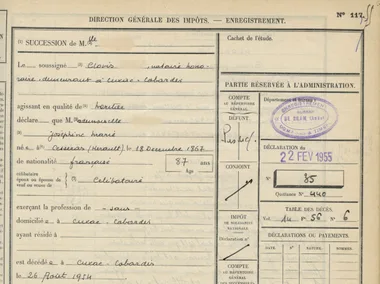 DIRECTION GÉNÉRALE DES IMPÔTS. — ENREGISTREMENT.
N° 117.
SUCCESSION de M lle
Le soussigné Clovis, notaire hono-
raire demeurant à Cuxac-Cabardès
agissant en qualité de héritier
déclare que Mademoiselle
Joséphine Marie
né e à Cesseras (Hérault) le 18 Décembre 1867
de nationalité française 87 ans
âge
célibataire
époux ou épouse de
veuf ou veuve de
Célibataire
exerçant la profession de - sans -
domicilié e à Cuxac-Cabardès
ayant résidé à
est décédé e à Cuxac-Cabardès
le 26 Août 1954
Cachet de l'étude.
PARTIE RÉSERVÉE À L'ADMINISTRATION.
COMPTE
AU RÉPERTOIRE
GÉNÉRAL
DÉFUNT
CONJOINT
IMPÔT
DE SOLIDARITÉ
NATIONALE
COMPTE
AU RÉPERTOIRE
GÉNÉRAL
Département et
DÉCLARATION du
22 FEV 1955
N° 35
Quittance N° 440
TABLE DES DÉCÈS.
Vol. 14 f° 56 n° 6
DÉCLARATIONS OU PAYEMENTS
DATE N° DATE N°